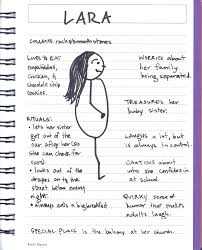 LARA
COLLECTS rocks/smooth stones.
LIKES to EAT
empanadas,
chicken, &
chocolate chip
cookies.
WORRIES about
her family
being separated.
TREASURES her
baby sister.
RITUALS:
• lets her sister
get out of the
car after her (so
she can check for
cars).
• looks out of the
drapes on to the
street below every
night.
• always eats a big breakfast
LAUGHS a lot, but
is always in control.
CAUTIOUS about
who she confides in
at school.
QUIRKY sense of
humor that makes
adults laugh.
SPECIAL PLACE is the balcony at her church.